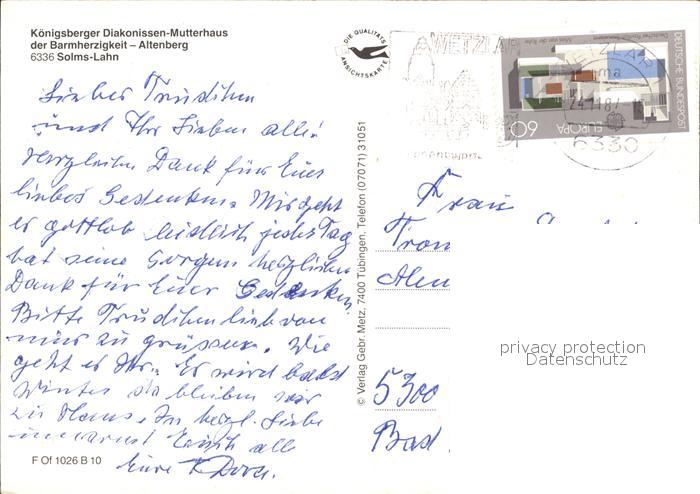 Königsberger Diakonissen-Mutterhaus
der Barmherzigkeit – Altenberg
6336 Solms-Lahn
Liebes Trudchen
und Ihr Lieben alle!
Herzlichen Dank für Euer
liebes Gedenken. Mir geht
es gottlob leidlich jeder Tag
hat seine Sorgen herzlichen
Dank für Euer Gedenken.
Bitte Trudchen lieb von
mir zu grüssen. Wie
geht es Ihr. Es wird bald
Winter da bleiben wir
zu Haus. In herzl. Liebe
umarmt Euch alle
Eure
F Of 1026 B 10
DIE QUALITÄTS
ANSICHTSKARTE
© Verlag Gebr. Metz, 7400 Tübingen, Telefon (07071) 31051
WETZLAR
WETZLAR
24.11.87
6330
DEUTSCHE BUNDESPOST
EUROPA
60
Frau
5300
Bad
privacy protection
Datenschutz